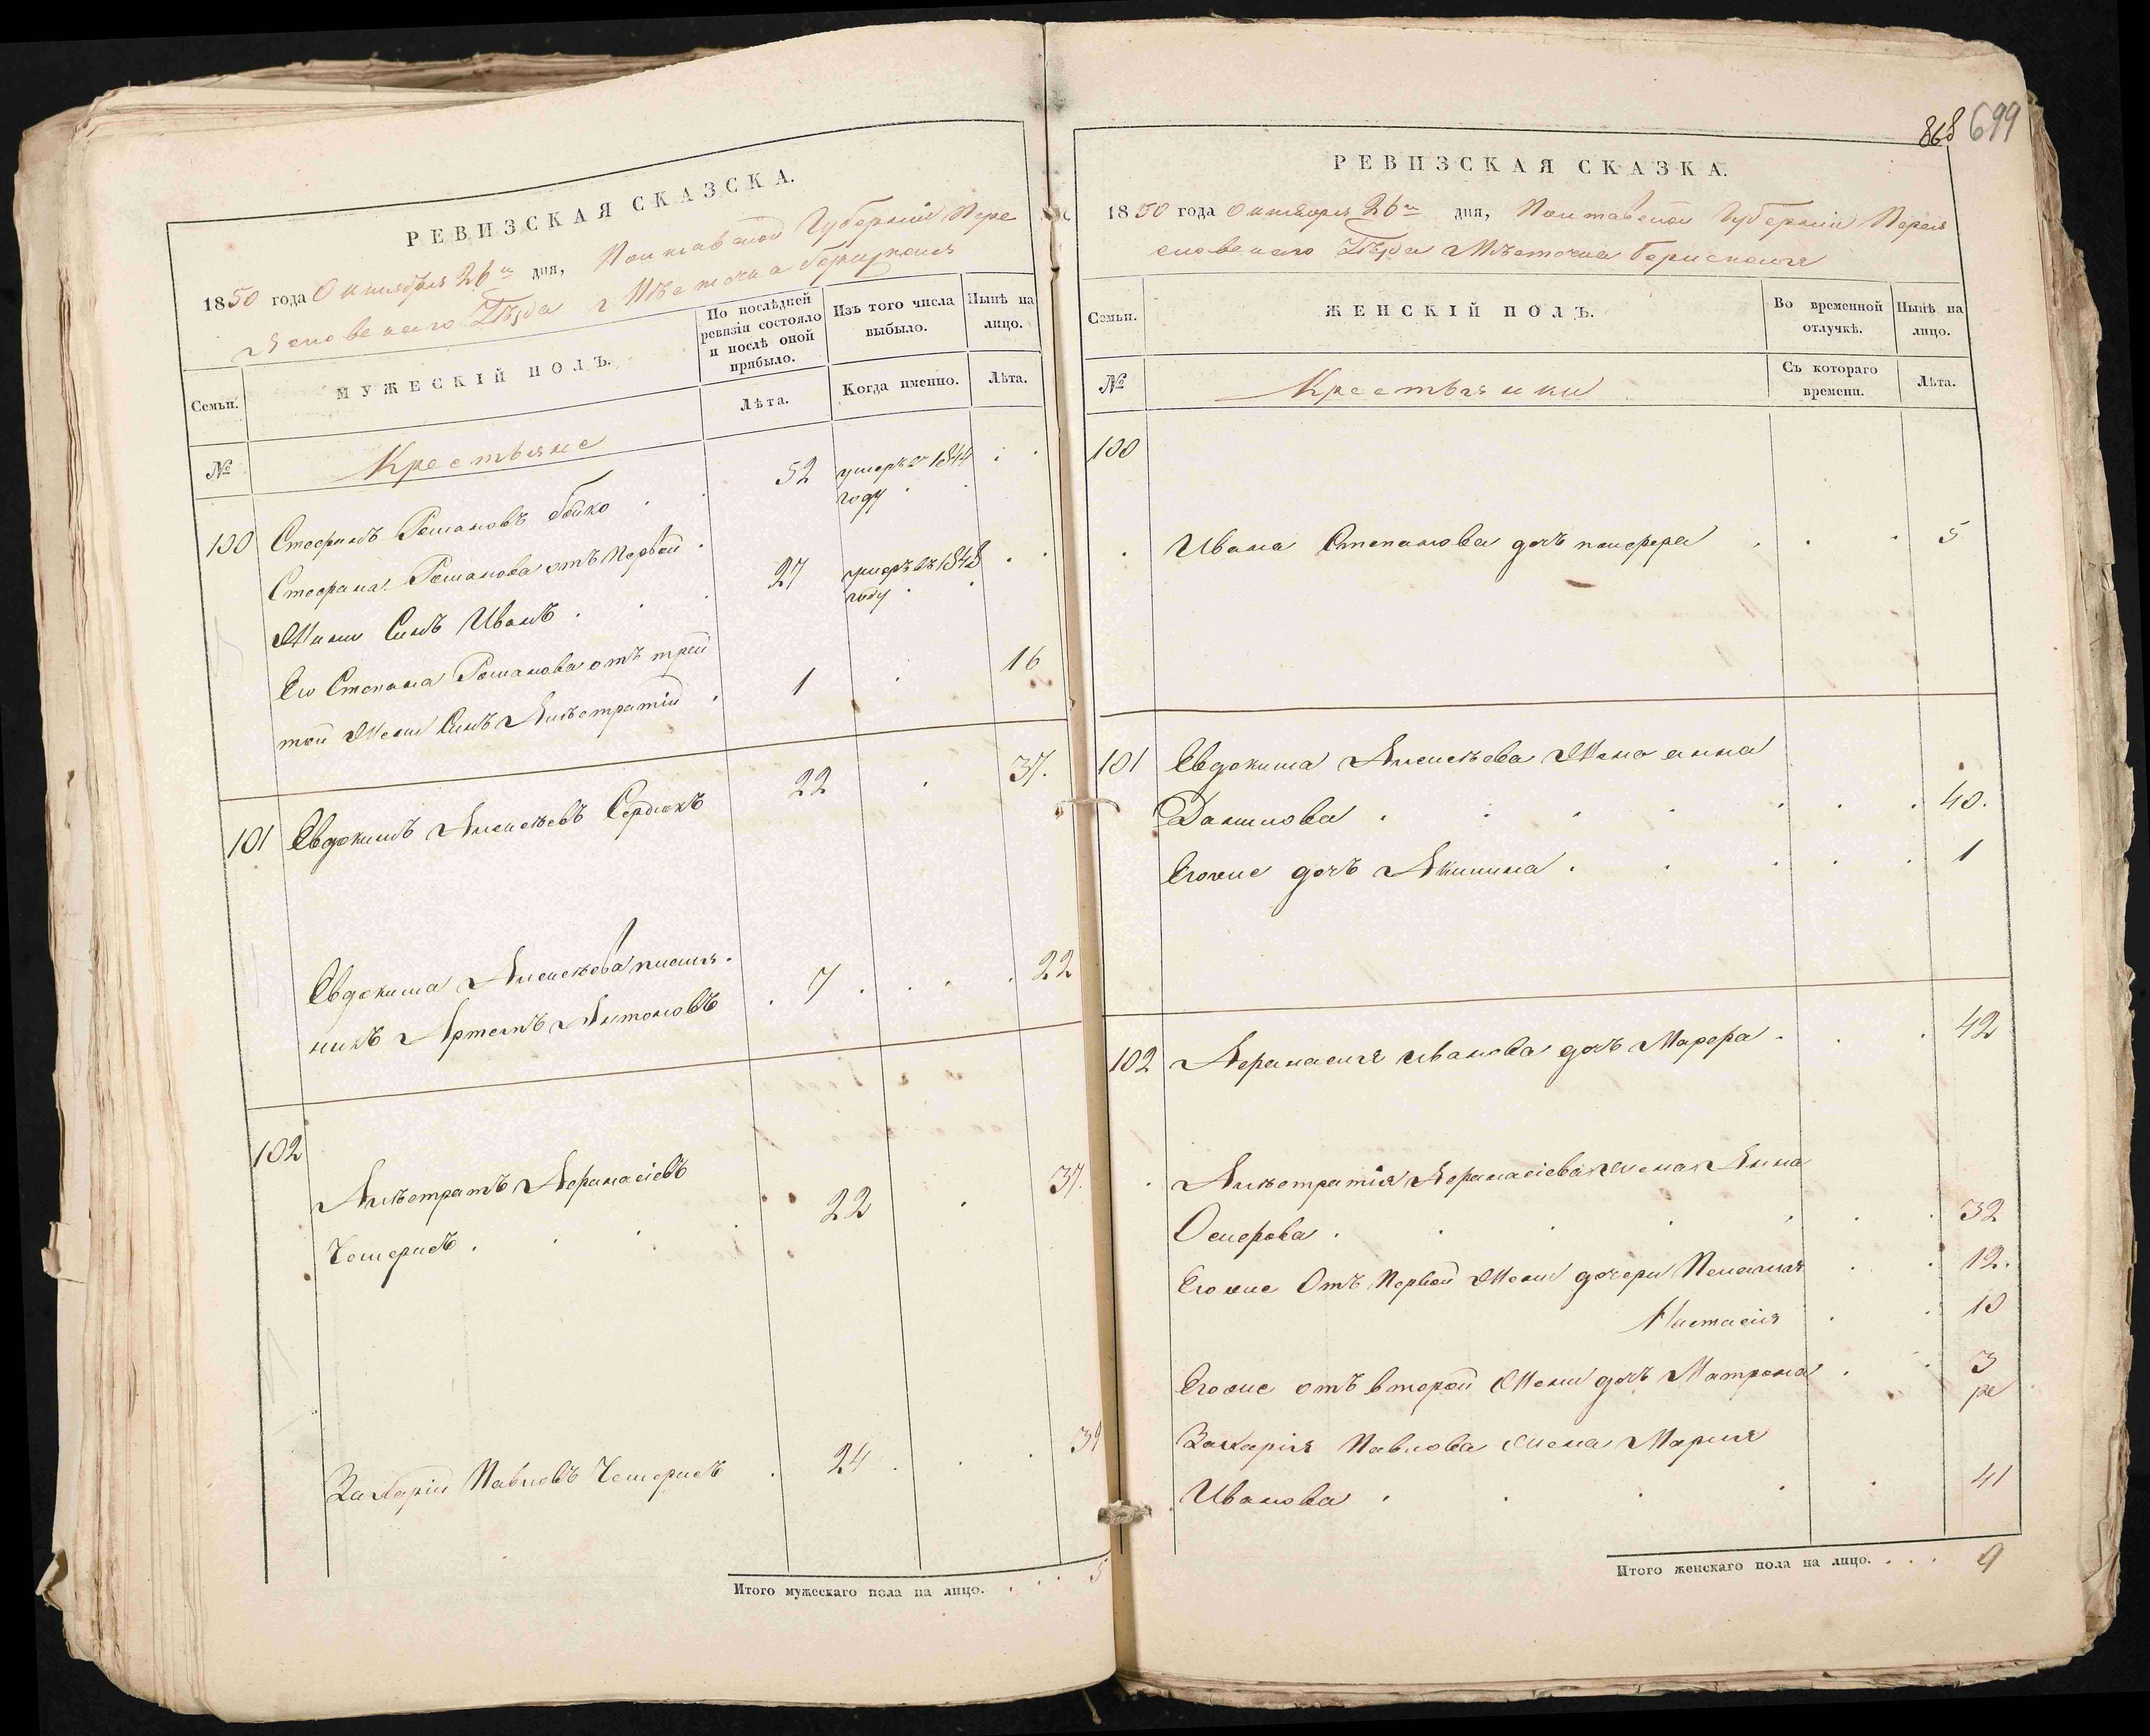 РЕВИЗСКАЯ СКАЗСКА.
1850 года Октября 26го дня, Полтавской Губернии Пере
яславскаго Уѣзда Мѣстечка Борисполя
Семьи.
МУЖЕСКІЙ ПОЛЪ.
По послѣдней ревизіи состояло и послѣ оной прибыло.
Изъ того числа выбыло.
Нынѣ на лицо.
№
Крестьяне
Лѣта.
Когда именно.
Лѣта.
100 Стефанъ Романовъ Бойко 52 умеръ въ 1844
году
Стефана Романова отъ Первой
Жени Синъ Иванъ 27 умеръ въ 1848
году
Его Степана Романова отъ трей
той Жени Синъ Алѣстратій 1 16
101 Евдокимъ Алексѣевъ Сердюкъ 22 37.
Евдокима Алексѣева племя
никъ Артемъ Антоновъ 7 22
102
Алѣстратъ Афанасіевъ
Чемерисъ 22 37.
Захарій Павловъ Чемерисъ 24 39
Итого мужескаго пола на лицо. 5
868 699
РЕВИЗСКАЯ СКАЗКА.
1850 года Октября 26го дня, Полтавской Губерніи Перея
славскаго Уѣзда Мѣстечка Борисполя
Семьи.
ЖЕНСКІЙ ПОЛЪ.
Во временной отлучкѣ.
Нынѣ на лицо.
№
Крестьянки
Съ котораго времени.
Лѣта.
100
Ивана Степанова дочъ 5
101 Евдокима Алексѣева Жена анна
Данилова 40.
Егоже дочъ Акилина 1
102 Афанасия иванова дочъ Марфа 42
Алѣстратія Афанасіева жена Анна
Осипова 32
Егоже Отъ Первой Жени дочери Пелагия 12.
Настасія 10
Егоже отъ второй Жени дочъ Матрона 3
Захарія Павлова жена Мария
Иванова 41
Итого женскаго пола на лицо. 9